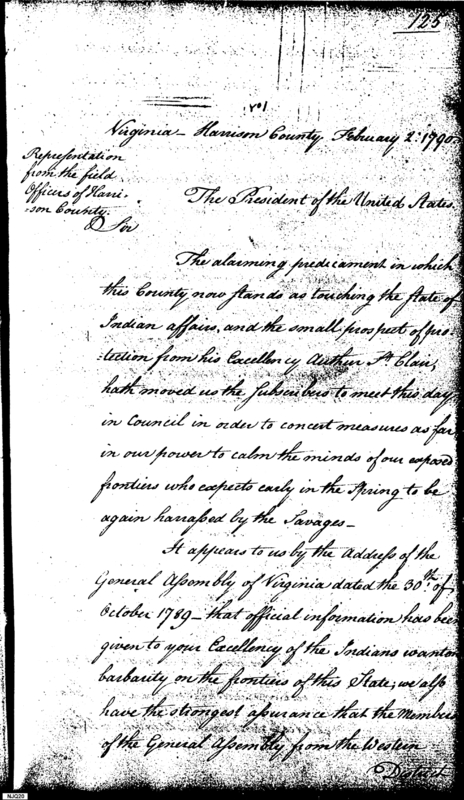 125
Virginia - Harrison County February 2d 1790
Representation
from the field
Officers of Harri-
-son County.
The President of the United States.
Sir
The alarming predicament in which
this County now stands as touching the state of
Indian affairs, and the small prospect of pro-
-tection from his Excellency Arthur St Clair,
hath moved us the Subscribers to meet this day
in Council in order to concert measures as far
in our power to calm the minds of our exposed
frontiers who expects early in the Spring to be
again harrassed by the Savages -
It appears to us by the Address of the
General Assembly of Virginia dated the 30th of
October 1789 - that official information has been
given to your Excellency of the Indians wanton
barbarity on the frontiers of this State; we also
have the strongest assurance that the Members
of the General Assembly from the Western
District
NJQ20